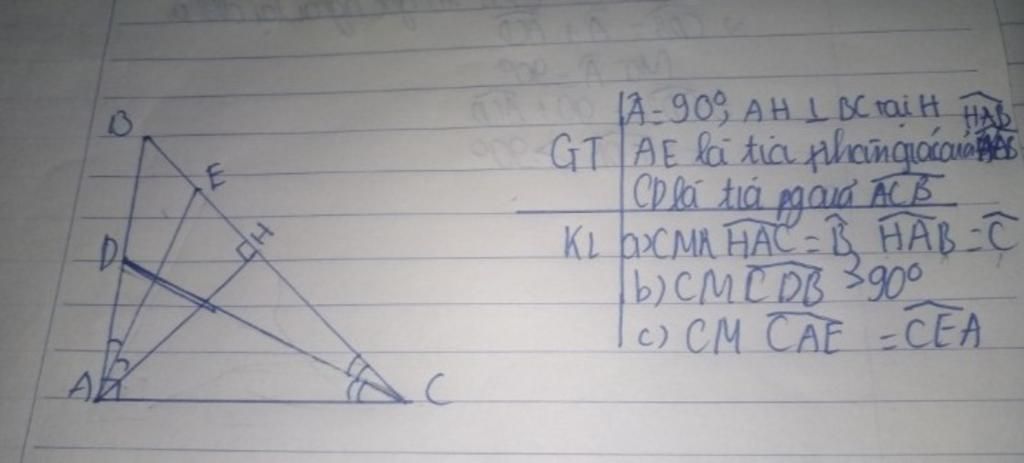 B
E
H
D
A
C
Â = 90°; AH ⊥ BC tại H
GT AE là tia phân giác của HAB
CD là tia pg của ACB
KL a) CMR HAC = B̂, HAB = Ĉ
b) CM CDB > 90°
c) CM CAE = CEA